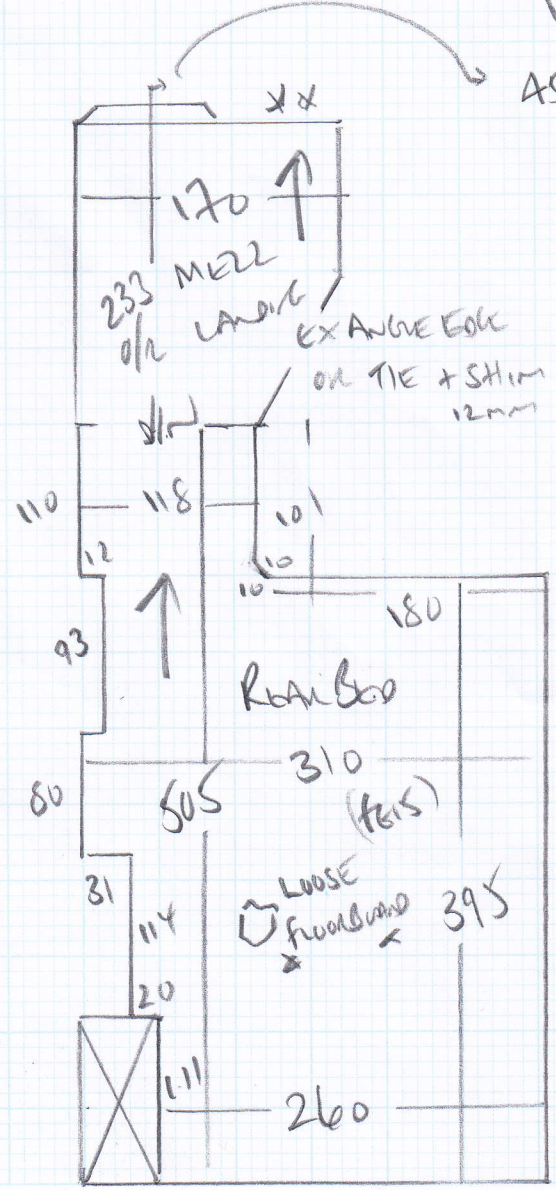 xx
170
233 MEZZ
O/R LANDING
EX ANGLE EDGE
OR TIE + SHIM
12mm
110
118
101
12
10
10
180
93
REAR BED
310
80
505
31
LOOSE
FLOORBOARD
395
x x
114
20
111
260